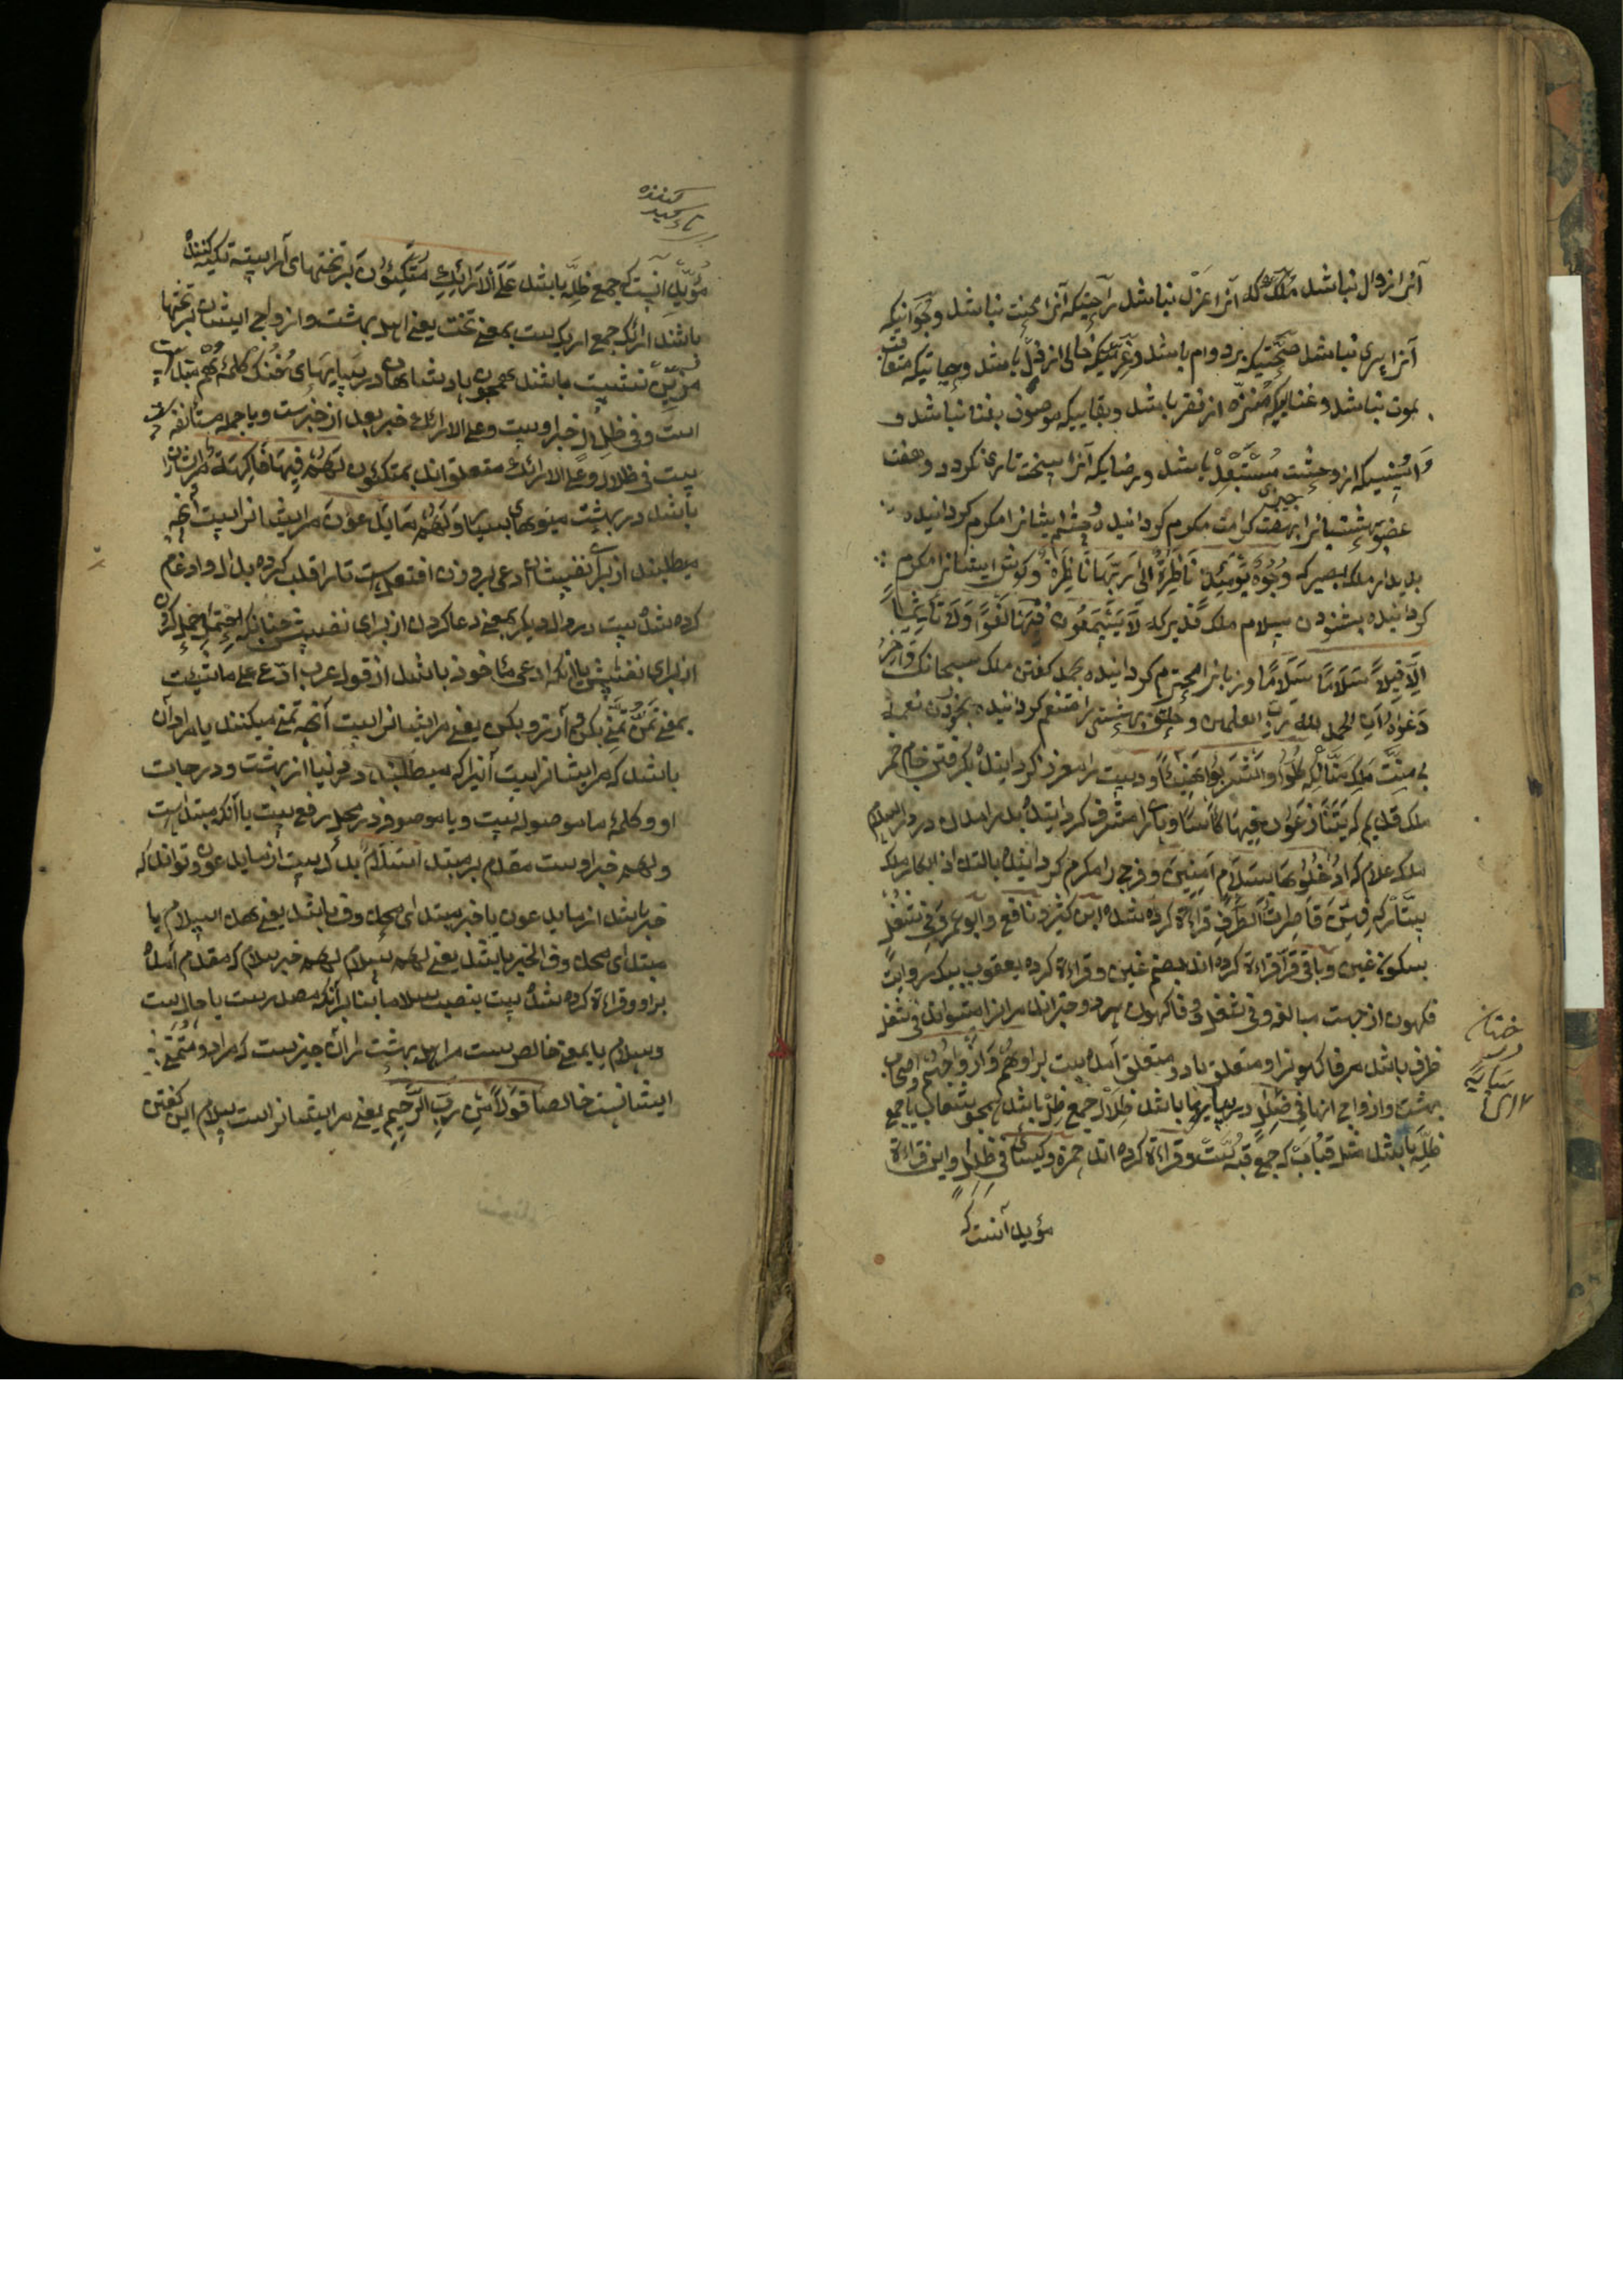 آنرا زوال نباشد ملکی که آنرا عزل نباشد راحتیکه آنرا محنت نباشد وجوانیکه
آنرا پیری نباشد صحتیکه بر دوام باشد وعزتیکه خالی از ذل باشد وحیاتیکه متعاقب
بموت نباشد وغنائیکه منزه از فقر باشد وبقاییکه موصوف بفنا نباشد و
وانسیتیکه از وحشت مستبعد باشد ورضایکه آنرا سخت تاری نکردد وهفت
عضو بهشتیانرا بهفت کرامت مکرم کردانیده چشم ایشانرا مکرم کردانیده
بدیدار ملک بصیر که وُجُوهٌ يَوْمَئِذٍ نَاضِرَةٌ إِلَى رَبِّهَا نَاظِرَةٌ وکوش ایشانرا مکرم
کردانیده بشنودن سلام ملک قدیر که لَا يَسْمَعُونَ فِيهَا لَغْوًا وَلَا تَأْثِيمًا
إِلَّا قِيلًا سَلَامًا سَلَامًا وزبانرا محترم کردانیده بحمد کفتن ملک سبحانک وَآخِرُ
دَعْوَاهُمْ أَنِ الحمد لله رب العلمین وحلق بهشتی را متنعم کردانیده بخوردن نعمت
بی منت ملک منان که كُلُوا وَاشْرَبُوا هَنِيئًا ودست را معزز کردانیده بکرفتن جام خمر
ملک قدیم که يَتَنَازَعُونَ فِيهَا كَأْسًا وپای را مشرف کردانیده بدرآمدن در دار السلام
ملک علام که ادْخُلُوهَا بِسَلَامٍ آمِنِينَ وفرج را مکرم کردانیده بالتذاذ ابکار ملک
ستار که فِيهِنَّ قَاصِرَاتُ الطَّرْفِ قراءة کرده شده ابن کثیر ونافع وابو عمرو فی شغل
بسکون غین وباقی قراءة کرده اند بضم غین وقراءة کرده یعقوب بیک روایت
فکهون از جهت مبالغه وفی شغل وفاکهون هر دو خبراند مر انرا میتواند فی شغل
ظرف باشد مر فاکهونرا ومتعلق باو ومتعلق آمده ست براو هُمْ وَأَزْوَاجُهُمْ اصحاب
بهشت وازواج ازها فِي ظِلَالٍ در سایها باشد ظلال جمع ظل باشد همچو شعاب یا جمع
ظله باشد مثل قباب که جمع قبه ست وقراءة کرده اند حمزه وکسائی فی ظلل واین قراءة
مؤید آنست که
درختان
سایه
کننده
تاءکید
مؤید آنست که جمع ظله باشد عَلَى الْأَرَائِكِ مُتَّكِئُونَ بر تختهای آراسته تکیه کننده
باشند ارائک جمع اریکه ست بمعنی تخت یعنی اهل بهشت وازواج ایشان بر تختها
مزین نشست باشند همچون پادشاهان در سایهای خنک کلمه هم مبتدا ست
است وفی ظلال خبر اوست وعلی الارائک خبر بعد از خبرست ویا جمله مستأنفه
ست فی ظلال وعلی الارائک متعلق اند بمتکئون لَهُمْ فِيهَا فَاكِهَةٌ مر ایشانرا
باشد در بهشت میوهای بسیار وَلَهُمْ مَا يَدَّعُونَ مر ایشانرا ست آنچه
میطلبند از برای نفس ایشان ادعی بر وزن افتعل ست تا را قلب کرده بدال وادغام
کرده شده ست در دال دیکر بمعنی دعا کردن از برای نفس چنانکه احتمل احمل کرد
از برای نفسش یا آنکه ادعی ماخوذ باشد از قول عرب ادع علی ما شئت
بمعنی تمن تمنی بکن وآرزو بکن یعنی مر ایشانرا ست آنچه تمنی میکنند یا مراد آن
باشد که مر ایشانرا ست آنرا که میطلبند در دنیا از بهشت ودرجات
او وکلمه ما موصوله ست ویا موصوفه در محل رفع ست یا آنکه مبتدا ست
ولهم خبر اوست مقدم بر مبتدا سَلَامٌ بدل ست از ما یدعون وتواند که
خبر باشد از ما یدعون یا خبر مبتدای محذوف باشد یعنی هذا سلام یا
مبتدای محذوف الخبر باشد یعنی لهم سلام لهم خبر سلام که مقدم آمده
براو وقراءة کرده شده ست بنصب سلاما بنا بر آنکه مصدر ست یا حال ست
وسلام یا بمعنی خالص ست مر اهل بهشت را آن چیزست که مراد ومتمنی
ایشانست خالصا قَوْلًا مِنْ رَبٍّ الرَّحِيمِ یعنی مر ایشانرا ست سلام این کفتن